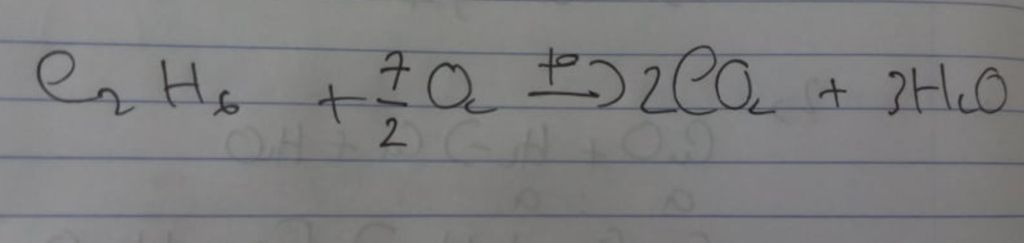 C₂H₆ + 7/2 O₂ —t°→ 2CO₂ + 3H₂O